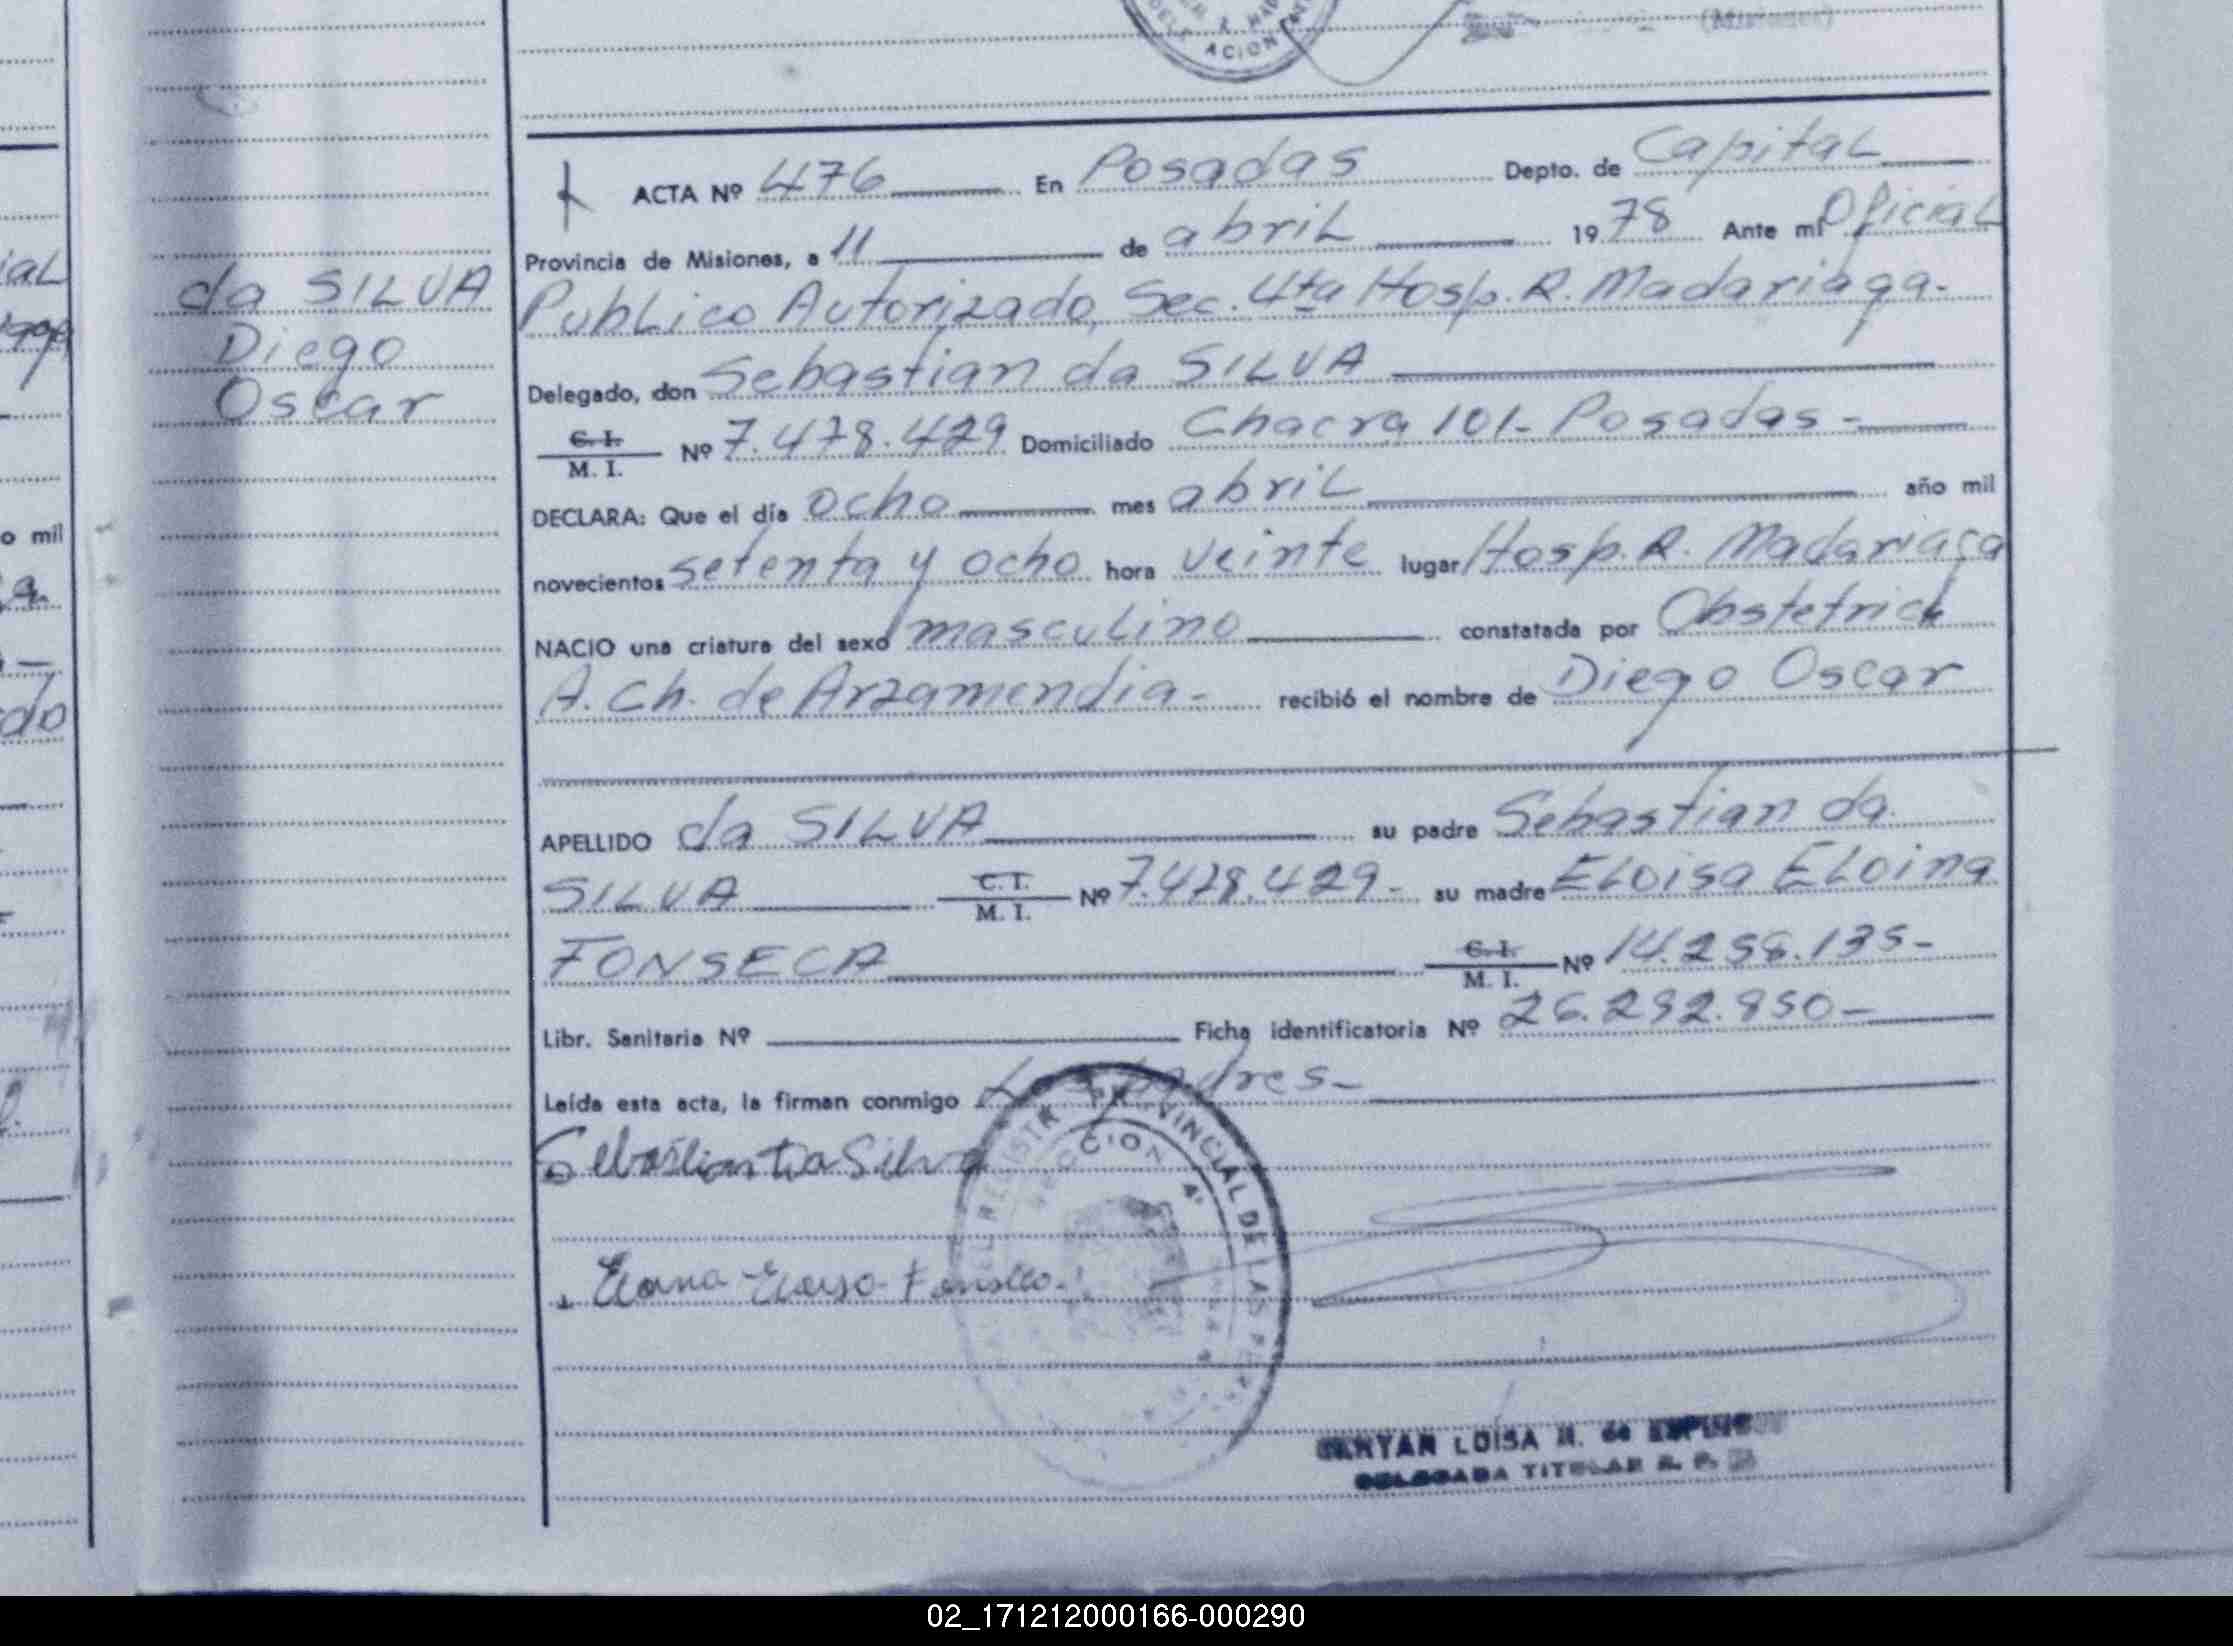 DELEGACION
(Misiones)
ACTA Nº 476 En Posadas Depto. de Capital
Provincia de Misiones, a 11 de abril 1978 Ante mí Oficial
Publico Autorizado, Sec. 4ta Hosp. R. Madariaga.
Delegado, don Sebastian da SILVA
C.I. / M. I. Nº 7.478.429 Domiciliado Chacra 101- Posadas -
DECLARA: Que el día ocho mes abril año mil
novecientos setenta y ocho hora veinte lugar Hosp. R. Madariaga
NACIO una criatura del sexo masculino constatada por Obstetrica
A. Ch. de Arzamendia - recibió el nombre de Diego Oscar
APELLIDO da SILVA su padre Sebastian da
SILVA C.I. / M. I. Nº 7.478.429- su madre Eloisa Eloina
FONSECA C.I. / M. I. Nº 14.258.135-
Libr. Sanitaria Nº Ficha identificatoria Nº 26.292.850-
Leída esta acta, la firman conmigo Los padres-
Sebastian da Silva
REGISTRO PROVINCIAL DE LAS PERSONAS
SECCION 4ª
LOISA N. de
DELEGADA TITULAR R. P.
da SILVA
Diego
Oscar
ial
o mil
do
02_171212000166-000290